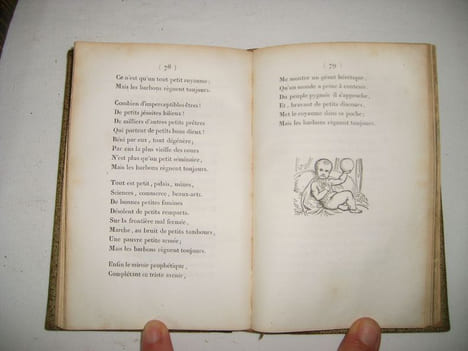 ( 78 )
Ce n'est qu'un tout petit royaume ;
Mais les barbons règnent toujours.
Combien d'imperceptibles êtres !
De petits jésuites bilieux !
De milliers d'autres petits prêtres
Qui portent de petits bons dieux !
Béni par eux, tout dégénère ;
Par eux la plus vieille des cours
N'est plus qu'un petit séminaire ;
Mais les barbons règnent toujours.
Tout est petit, palais, usines,
Sciences, commerce, beaux-arts.
De bonnes petites famines
Désolent de petits remparts.
Sur la frontière mal fermée,
Marche, au bruit de petits tambours,
Une pauvre petite armée ;
Mais les barbons règnent toujours.
Enfin le miroir prophétique,
Complétant ce triste avenir,
( 79 )
Me montre un géant hérétique,
Qu'un monde a peine à contenir.
Du peuple pygmée il s'approche,
Et, bravant de petits discours,
Met le royaume dans sa poche ;
Mais les barbons règnent toujours.